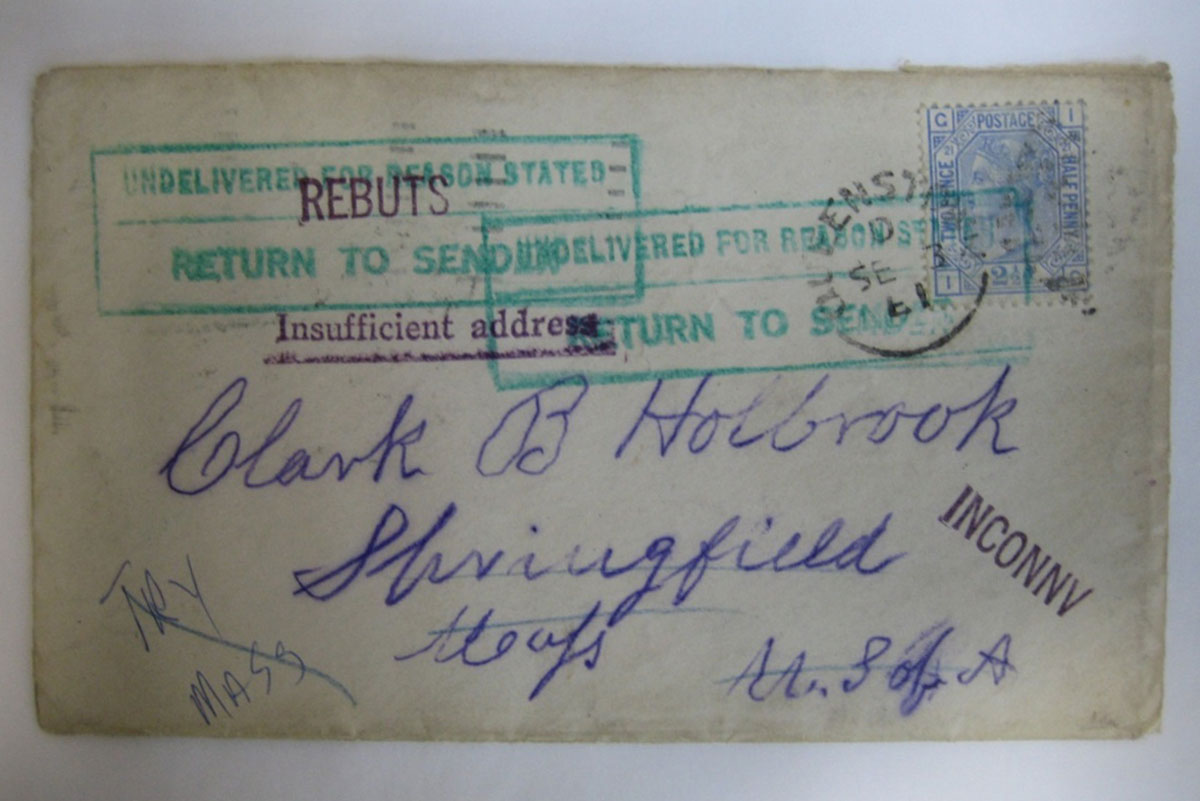 UNDELIVERED FOR REASON STATED
REBUTS
RETURN TO SENDER
UNDELIVERED FOR REASON
RETURN TO SENDER
Insufficient address
POSTAGE
TWO PENCE
HALF PENNY
G I
I
2½
SE
Clark B Holbrook
Springfield
Mass
U. S of A
TRY
MASS
INCONNV